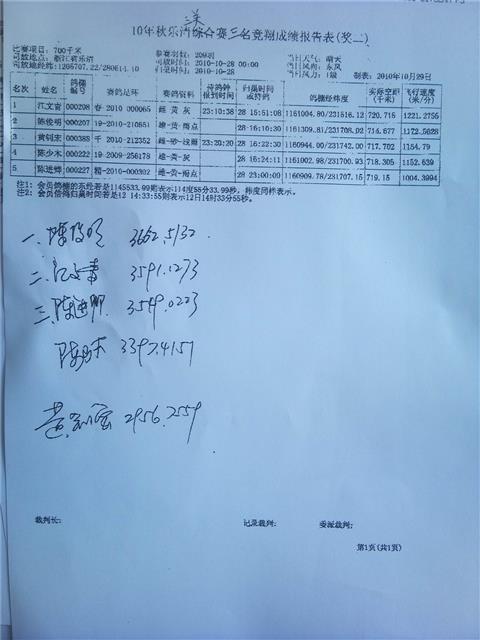 三关
10年秋乐清综合赛三名竞翔成绩报告表(奖二)
比赛项目: 700千米 参赛羽数: 209羽 天气: 晴天
司放地点: 浙江省乐清 司放时间: 2010-10-28 00:00 风向: 东风
司放地经纬: 1205707.22/280614.10 归巢时间: 2010-10-28 风力: 1级 制表: 2010年10月29日
名次 姓名 鸽棚编号 赛鸽足环 赛鸽资料 待鸽钟报到时间 归巢时间或待鸽 鸽棚经纬度 实际空距(千米) 飞行速度(米/分)
1 江文清 000208 春 2010 000065 雄 黄 灰 23:10:38 28 15:51:08 1161004.80/231516.12 720.715 1221.2755
2 陈俊明 000207 19-2010-210851 雄-黄-雨点 28 16:10:30 1161309.81/231708.02 716.677 1172.5628
3 黄钊宏 000388 千 2010-212352 23:20:20 28 16:22:30 1160944.00/231742.00 717.702 1154.79
4 陈少木 000222 19-2009-256178 雄-黄-灰 28 16:24:11 1161002.98/231700.93 718.305 1152.639
5 陈进辉 000227 精-2010-000302 雌-黄-雨点 28 23:00:09 1160909.78/231707.15 719.15 1004.3994
注1: 会员鸽棚的东经若是1145533.99则表示114度55分33.99秒, 纬度同样表示。
注2: 会员信鸽归巢时间若是12 14:33:55则表示12日14时33分55秒。
一、陈俊明 3662.5132
二、江文清 3591.1273
三、陈进辉 3549.0223
陈少木 3397.4157
黄钊宏 2956.2559
裁判长: 记录裁判: 委派裁判:
第1页(共1页)